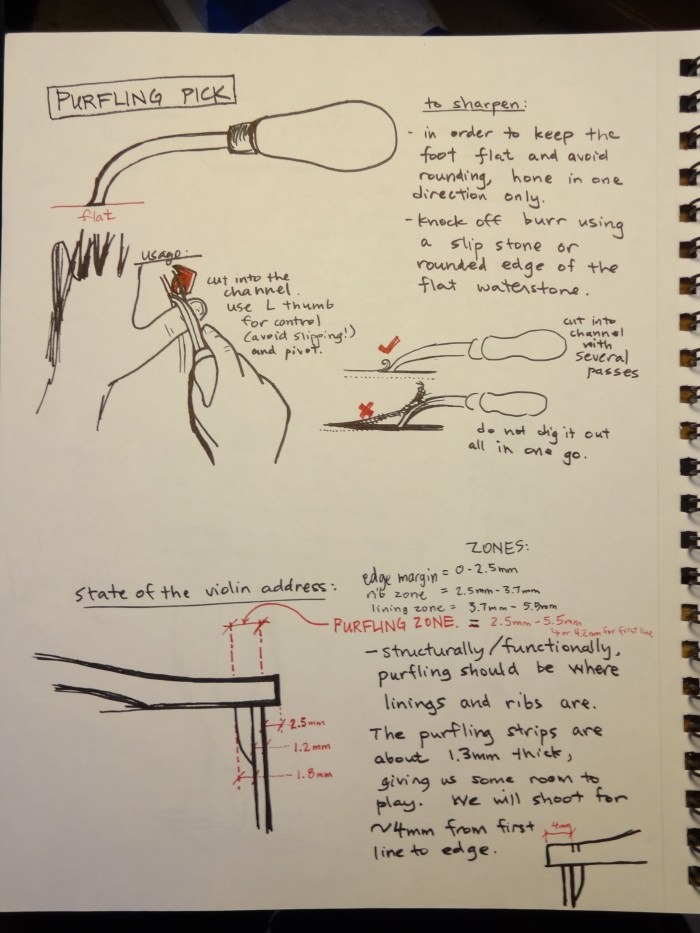 PURFLING PICK
flat
to sharpen:
- in order to keep the
foot flat and avoid
rounding, hone in one
direction only.
- Knock off burr using
a slip stone or
rounded edge of the
flat waterstone.
usage:
cut into the
channel.
use L thumb
for control
(avoid slipping!)
and pivot.
cut into
channel
with
several
passes
do not dig it out
all in one go.
State of the violin address:
ZONES:
edge margin = 0-2.5mm
rib zone = 2.5mm-3.7mm
lining zone = 3.7mm-5.5mm
PURFLING ZONE. = 2.5mm-5.5mm
4 or 4.2mm for first line
- structurally/functionally,
purfling should be where
linings and ribs are.
The purfling strips are
about 1.3mm thick,
giving us some room to
play. We will shoot for
~4mm from first
line to edge.
2.5mm
1.2mm
1.8mm
4mm